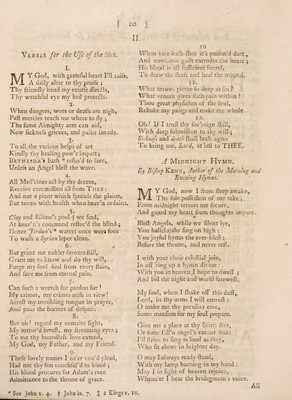 [ 20 ]
II.
VERSES for the Use of the Sick.
1.
MY God, with grateful heart I'll raise,
A daily altar to thy praise;
Thy friendly hand my course directs,
Thy watchful eye my bed protects.
2.
When dangers, woes or death are nigh,
Past mercies teach me where to fly;
The same Almighty arm can aid,
Now sickness grieves, and pains invade.
3.
To all the various helps of art
Kindly thy healing pow'r impart;
BETHESDA's bath * refus'd to save,
Unless an Angel blest the wave.
4.
All Med'cines act by thy decree,
Receive commission all from THEE:
And not a plant which spreads the plains,
But teems with health when heav'n ordains.
5.
Clay and Siloam's pool † we find,
At heav'n's command restor'd the blind;
Hence Jordan's ‡ waters once were seen
To wash a Syrian leper clean.
6.
But grant me nobler favours still,
Grant me to know and do thy will,
Purge my foul soul from every stain,
And save me from eternal pain.
7.
Can such a wretch for pardon sue?
My crimes, my crimes arise in view!
Arrest my trembling tongue in prayer,
And pour the horrors of despair.
8.
But oh! regard my contrite sighs,
My tortur'd breast, my streaming eyes;
To me thy boundless love extend,
My God, my Father, and my Friend.
9.
These lovely names I ne'er cou'd plead,
Had not thy son vouchsaf'd to bleed;
His blood procures for Adam's race
Admittance to the throne of grace.
* See John v. 4. † John ix. 7. ‡ 2 Kings v. 10.
10
When vice hath shot it's poison'd dart,
And conscious guilt corrodes the heart;
His blood is all-sufficient found,
To draw the shaft and heal the wound.
11.
What arrows pierce so deep as sin?
What venom gives such pain within?
Thou great physician of the soul,
Rebuke my pangs and make me whole.
12.
Oh! if I trust thy sov'reign skill,
With deep submission to thy will;
Sickness and death shall both agree
To bring me, Lord, at last to THEE.
A MIDNIGHT HYMN.
By Bishop KENN, Author of the Morning and
Evening Hymns.
MY God, now I from sleep awake,
The sole possession of me take;
From midnight terrors me secure,
And guard my heart from thoughts impure.
Blest Angels, while we silent lye,
You hallelujahs sing on high;
You joyful hymn the ever-blest;
Before the throne, and never rest.
I with your choir celestial join,
In off'ring up a hymn divine:
With you in heaven I hope to dwell;
And bid the night and world farewell.
My soul, when I shake off this dust,
Lord, in thy arms I will entrust:
O make me thy peculiar care,
Some mansion for my soul prepare.
Give me a place at thy saints feet,
Or some fall'n angel's vacant seat:
I'll strive to sing as loud as they,
Who sit above in brighter day.
O may I always ready stand,
With my lamp burning in my hand:
May I in sight of heaven rejoice,
Whene'er I hear the bridegroom's voice.
All